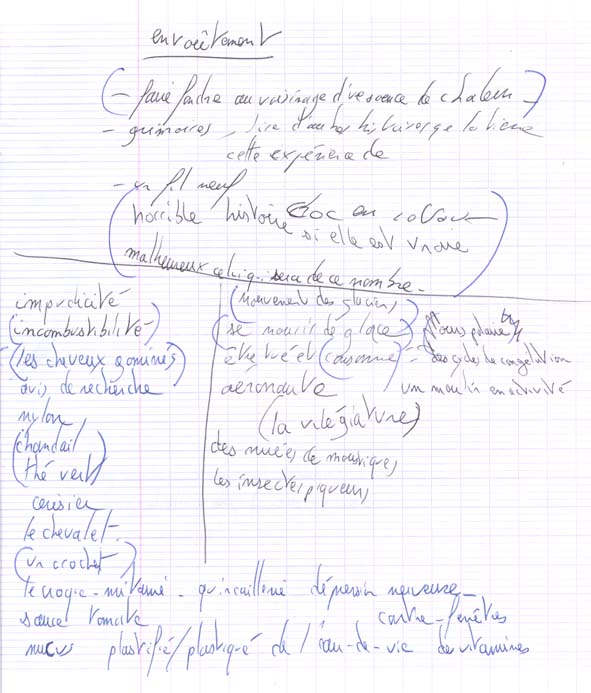 envoûtement
(- faire fondre au voisinage d'une source de chaleur)
- grimoires, lire d'autres histoires que la tienne
cette expérience de
- un fil neuf
(horrible histoire
si elle est vraie
malheureux celui qui sera de ce nombre.)
impudicité
(incombustibilité)
(les cheveux gominés)
avis de recherche
nylon
(chandail
thé vert)
cerisier
le chevalet
(un crochet)
(mouvement des glaciers)
(se nourrir de glace)
être tué et (consommé)
des cycles de congélation
aéronaute
un moulin en activité
(la villégiature)
des nuées de moustiques
les insectes piqueurs
le croque-mitaine - quincaillerie dépression nerveuse
sauce tomate contre-fenêtres
mucus plastifié/plastiqué de l'eau-de-vie des vitamines